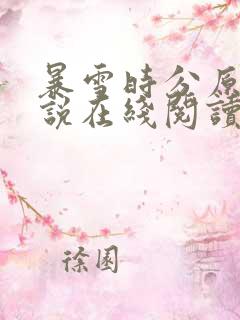 暴雪時分原
說在綫閱讀
徐園